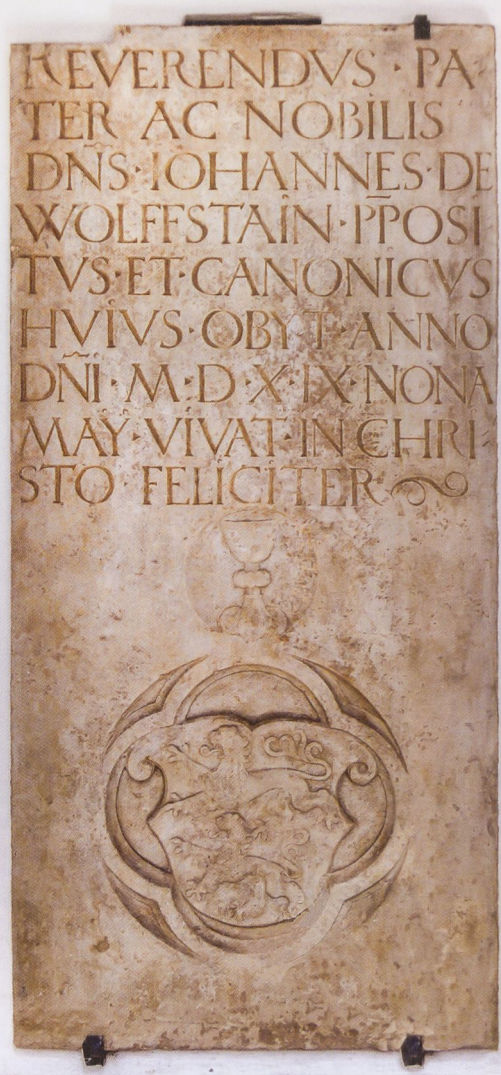 REVERENDVS · PA
TER AC NOBILIS
DN̄S · IOHANNES · DE
WOLFFSTAIN · P̄POSI
TVS · ET · CANONICVS
HVIVS · OBYT · ANNO
DN̄I · M · D · X · IX · NONA
MAY · VIVAT · IN CHRI
STO FELICITER